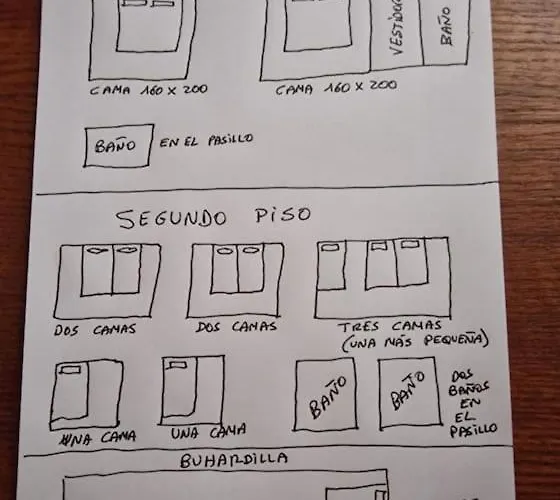 VESTIDOR
BAÑO
CAMA 160 X 200
CAMA 160 X 200
BAÑO
EN EL PASILLO
SEGUNDO PISO
DOS CAMAS
DOS CAMAS
TRES CAMAS
(UNA MÁS PEQUEÑA)
UNA CAMA
UNA CAMA
BAÑO
BAÑO
DOS
BAÑOS
EN
EL
PASILLO
BUHARDILLA